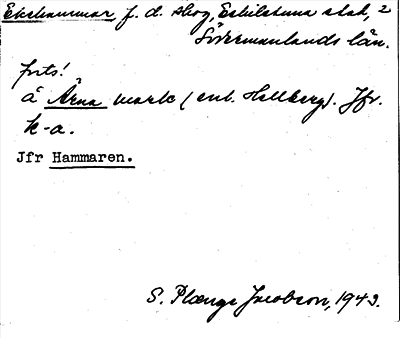 Ekshammar f. d. skog, Eskilstuna stad, 2
Södermanlands län.
forts!
å Ärna mark (enl. Hellberg). Jfr.
k-a.
Jfr Hammaren.
S. Plænge Jacobson, 1943.